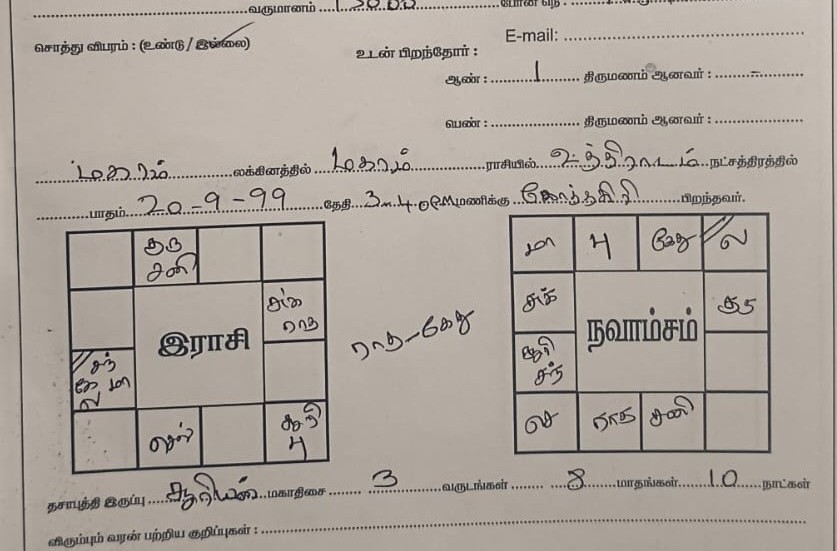 வருமானம் போன் நெ :
சொத்து விபரம் : (உண்டு / இல்லை)
E-mail:
உடன் பிறந்தோர் :
ஆண் : 1 திருமணம் ஆனவர் : -
பெண் : திருமணம் ஆனவர் :
மகரம் லக்கினத்தில் மகரம் ராசியில் உத்திராடம் நட்சத்திரத்தில்
பாதம் 20-9-99 தேதி 3.40PM மணிக்கு கோத்தகிரி பிறந்தவர்.
குரு
சனி
சுக்
ராகு
இராசி
சந்
கே மா
ல
செவ்
சூரி
பு
ராகு-கேது
மா பு கேது ல
சுக் குரு
நவாம்சம்
சூரி
சந்
செ ராகு சனி
தசாபுத்தி இருப்பு சூரியன் மகாதிசை 3 வருடங்கள் 8 மாதங்கள் 10 நாட்கள்
விரும்பும் வரன் பற்றிய குறிப்புகள் :